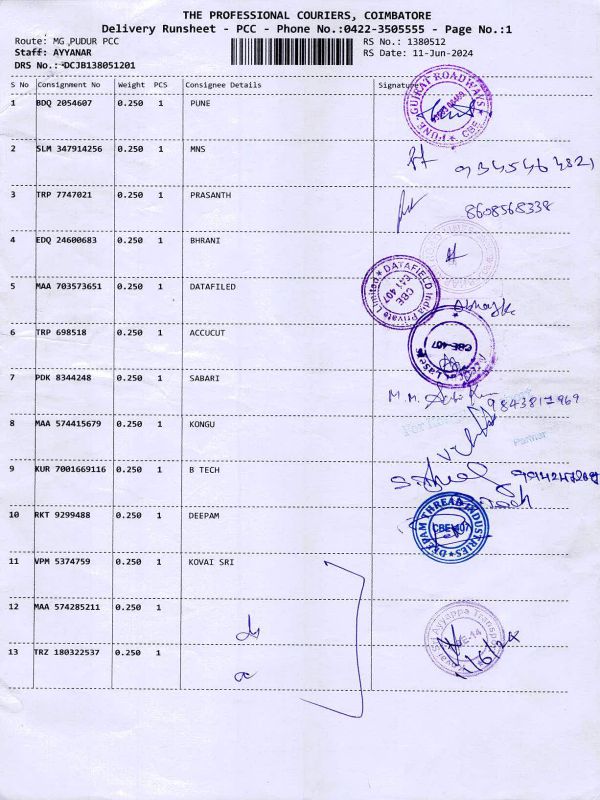 THE PROFESSIONAL COURIERS, COIMBATORE
Delivery Runsheet - PCC - Phone No.:0422-3505555 - Page No.:1
Route: MG PUDUR PCC RS No.: 1380512
Staff: AYYANAR RS Date: 11-Jun-2024
DRS No.: DCJB138051201
S No Consignment No Weight PCS Consignee Details Signature
1 BDQ 2054607 0.250 1 PUNE
PUNE GUJRAT ROADWAYS CBE
2 SLM 347914256 0.250 1 MNS
9345464321
3 TRP 7747021 0.250 1 PRASANTH
8608568338
4 EDQ 24600683 0.250 1 BHRANI
5 MAA 703573651 0.250 1 DATAFILED
DATAFIELD India Private Limited CBE 641 407
6 TRP 698518 0.250 1 ACCUCUT
CBE-407
7 PDK 8344248 0.250 1 SABARI
9843817969
8 MAA 574415679 0.250 1 KONGU
Partner
9 KUR 7001669116 0.250 1 B TECH
10 RKT 9299488 0.250 1 DEEPAM
DEEPAM THREAD INDUSTRIES CBE-407
11 VPM 5374759 0.250 1 KOVAI SRI
12 MAA 574285211 0.250 1
13 TRZ 180322537 0.250 1
Kovai Sri Ayyappa Transport
11/6/24